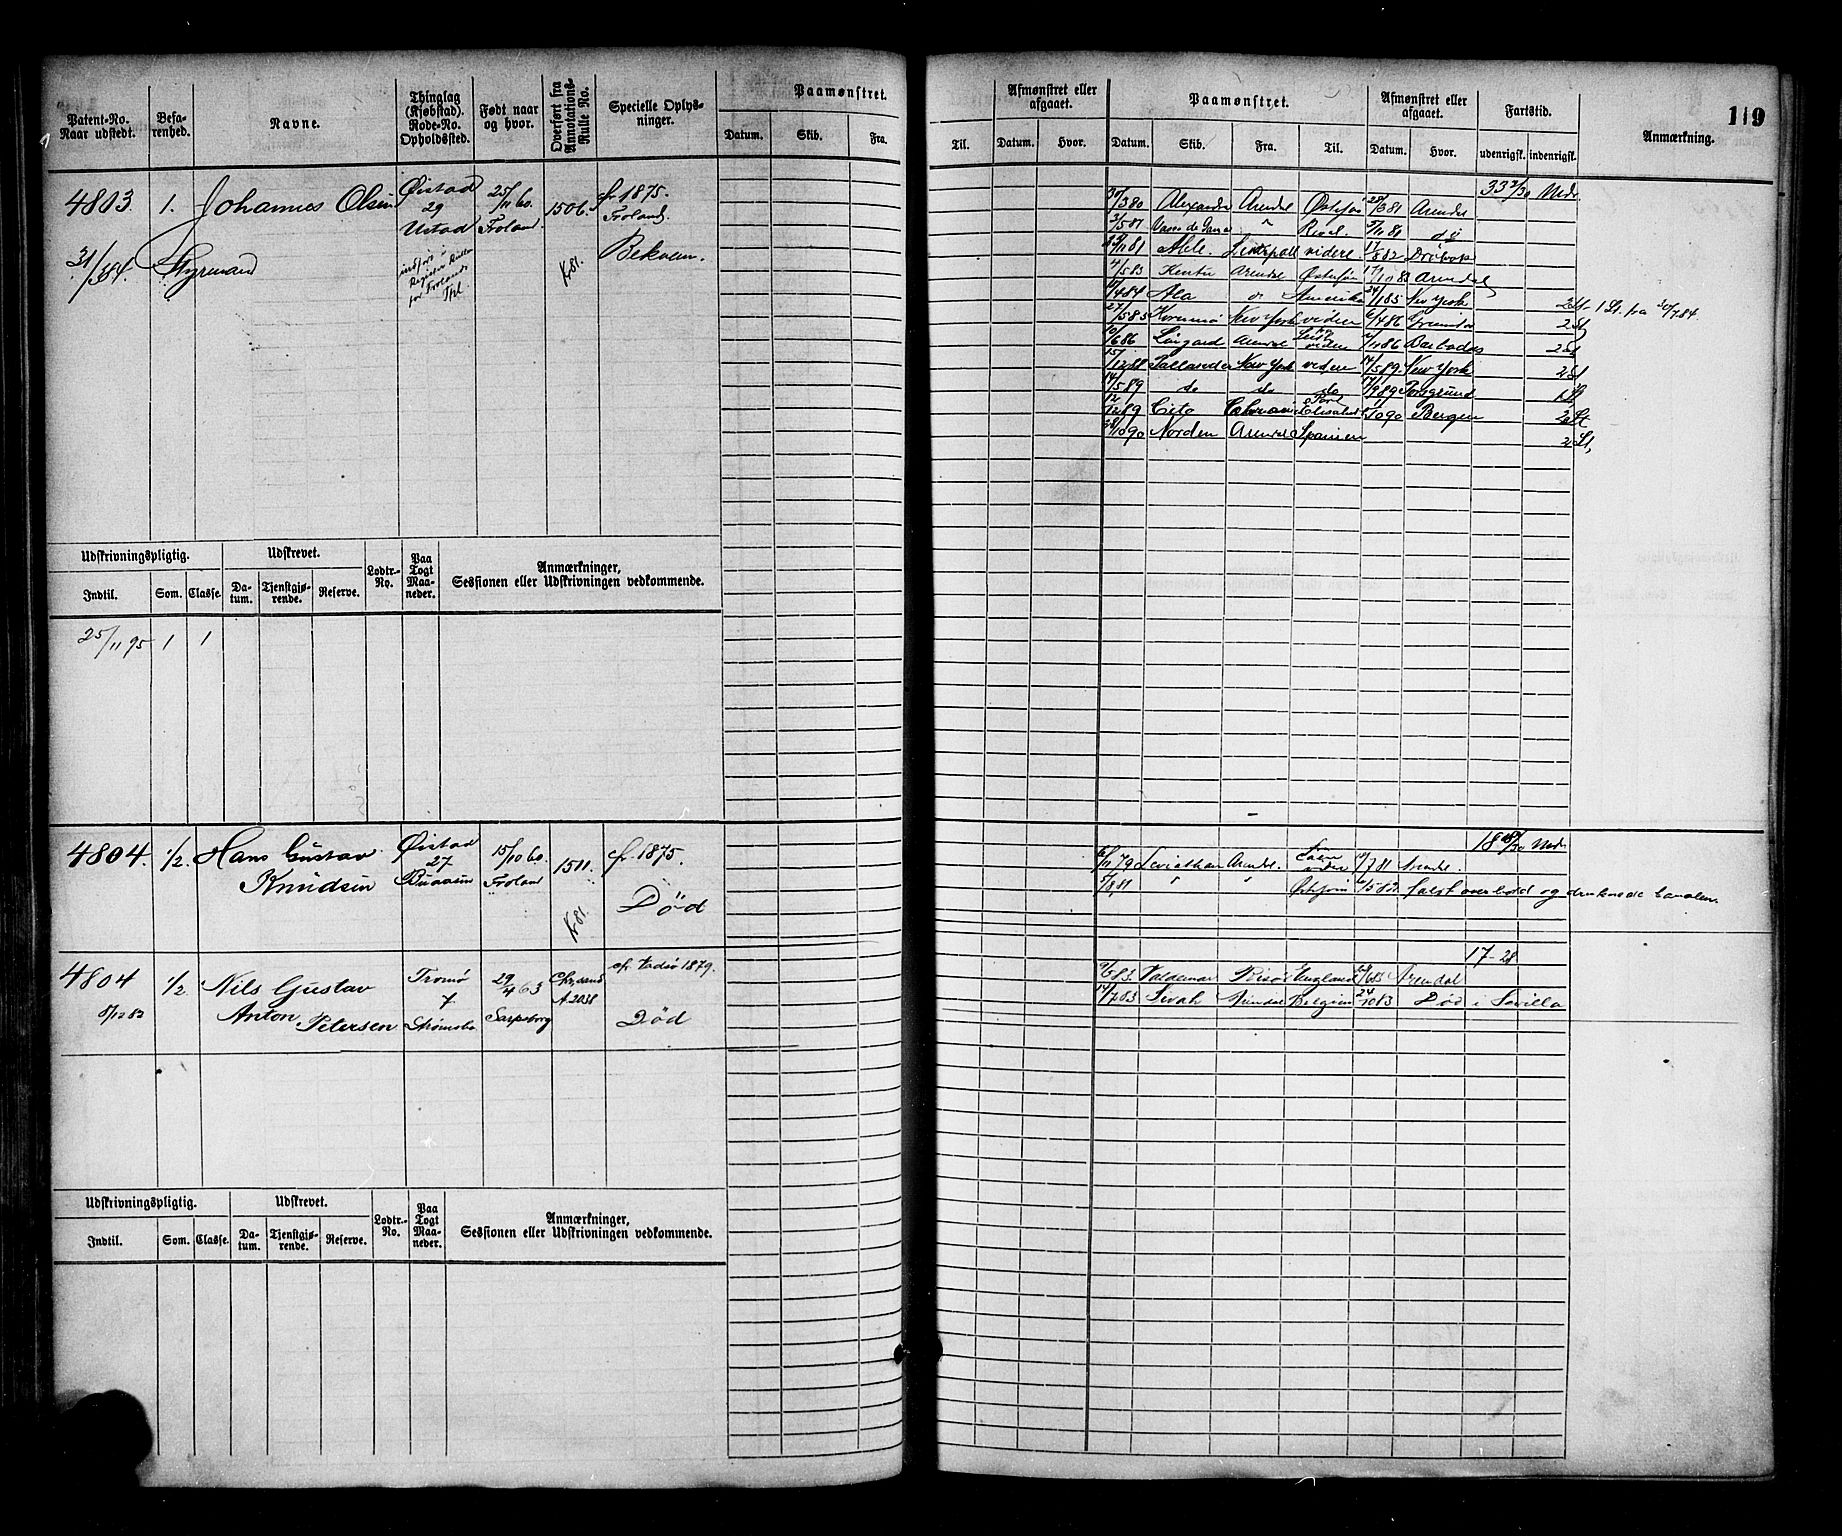 119
Patent-No. Naar udstedt. Befarenhed. Navne. Thinglag (Kjøbstad). Rode-No. Opholdssted. Født naar og hvor. Overført fra Annotations-Rulle No. Specielle Oplysninger. Paamønstret. Datum. Skib. Fra.
Til. Afmønstret eller afgaaet. Datum. Hvor. Paamønstret. Datum. Skib. Fra. Til. Afmønstret eller afgaaet. Datum. Hvor. Fartstid. udenrigsk. indenrigsk. Anmærkning.
4803 1. Johannes Olsen Øistad 25/11 60. 1506. fr 1875.
29 Froland Froland.
31/3 84. Styrmand Ustad Kr 81. Bekvem.
indført i
for Frolands
Thl.
33 Mdr
30/3 80 Alexandra Arendal Østersøen 28/3 81 Arendal
3/5 81 Vasco de Gama " Reval. 5/11 81 do
Able. videre 17/8 82 Drøbak
4/5 83 Arendal Østersøen 17/10 83 Arendal
4 84 Ala do Amerika 24/1 85 New York 2 St - 1 St. fra 30/7 84.
27/5 85 New York videre 6/4 86 2 St
10/6 86 Arendal videre 11 86 Barbados 2 St
15/12 88 New York videre 14/5 89 New York 2 St
14/5 89 do do do 17/9 89 Porsgrund 1 St
12/12 89 Cito Port Elisabeth 10 90 Bergen 2 St
28/10 90 Norden Arendal Spanien 2 St,
Udskrivningspligtig. Udskrevet. Lodtr.-Ny. Paa Togt Maaneder. Anmærkninger, Sessionen eller Udskrivningen vedkommende.
Indtil. Som. Classe. Datum. Tjenstgjørende. Reserve.
25/11 95 1 1
4804. 1/2. Hans Gustav Øistad 15/10 60. 1511. fr. 1875.
Knudsen 27 Froland
Kr 81. Død
18 Mdr.
6/11 79 Leviathan Arendal. videre 7 81 Arendal.
5/8 81 " " Østersøen 5 82. Faldt overbord og druknede
4804 1/2 Nils Gustav Tromø 29/4 63 Chr.sand fr. Vadsø 1879.
8/12 82 Anton Petersen 7 Sarpsborg A.2038
Strømsbo Død
17-28
9/5 83. Valdemar Risør England 6 83 Arendal
14/7 83 Sivah Arendal Belgien 24/10 83 Død i Sevilla
Udskrivningspligtig. Udskrevet. Lodtr.-No. Paa Togt Maaneder. Anmærkninger, Sessionen eller Udskrivningen vedkommende.
Indtil. Som. Classe. Datum. Tjenstgjørende. Reserve.